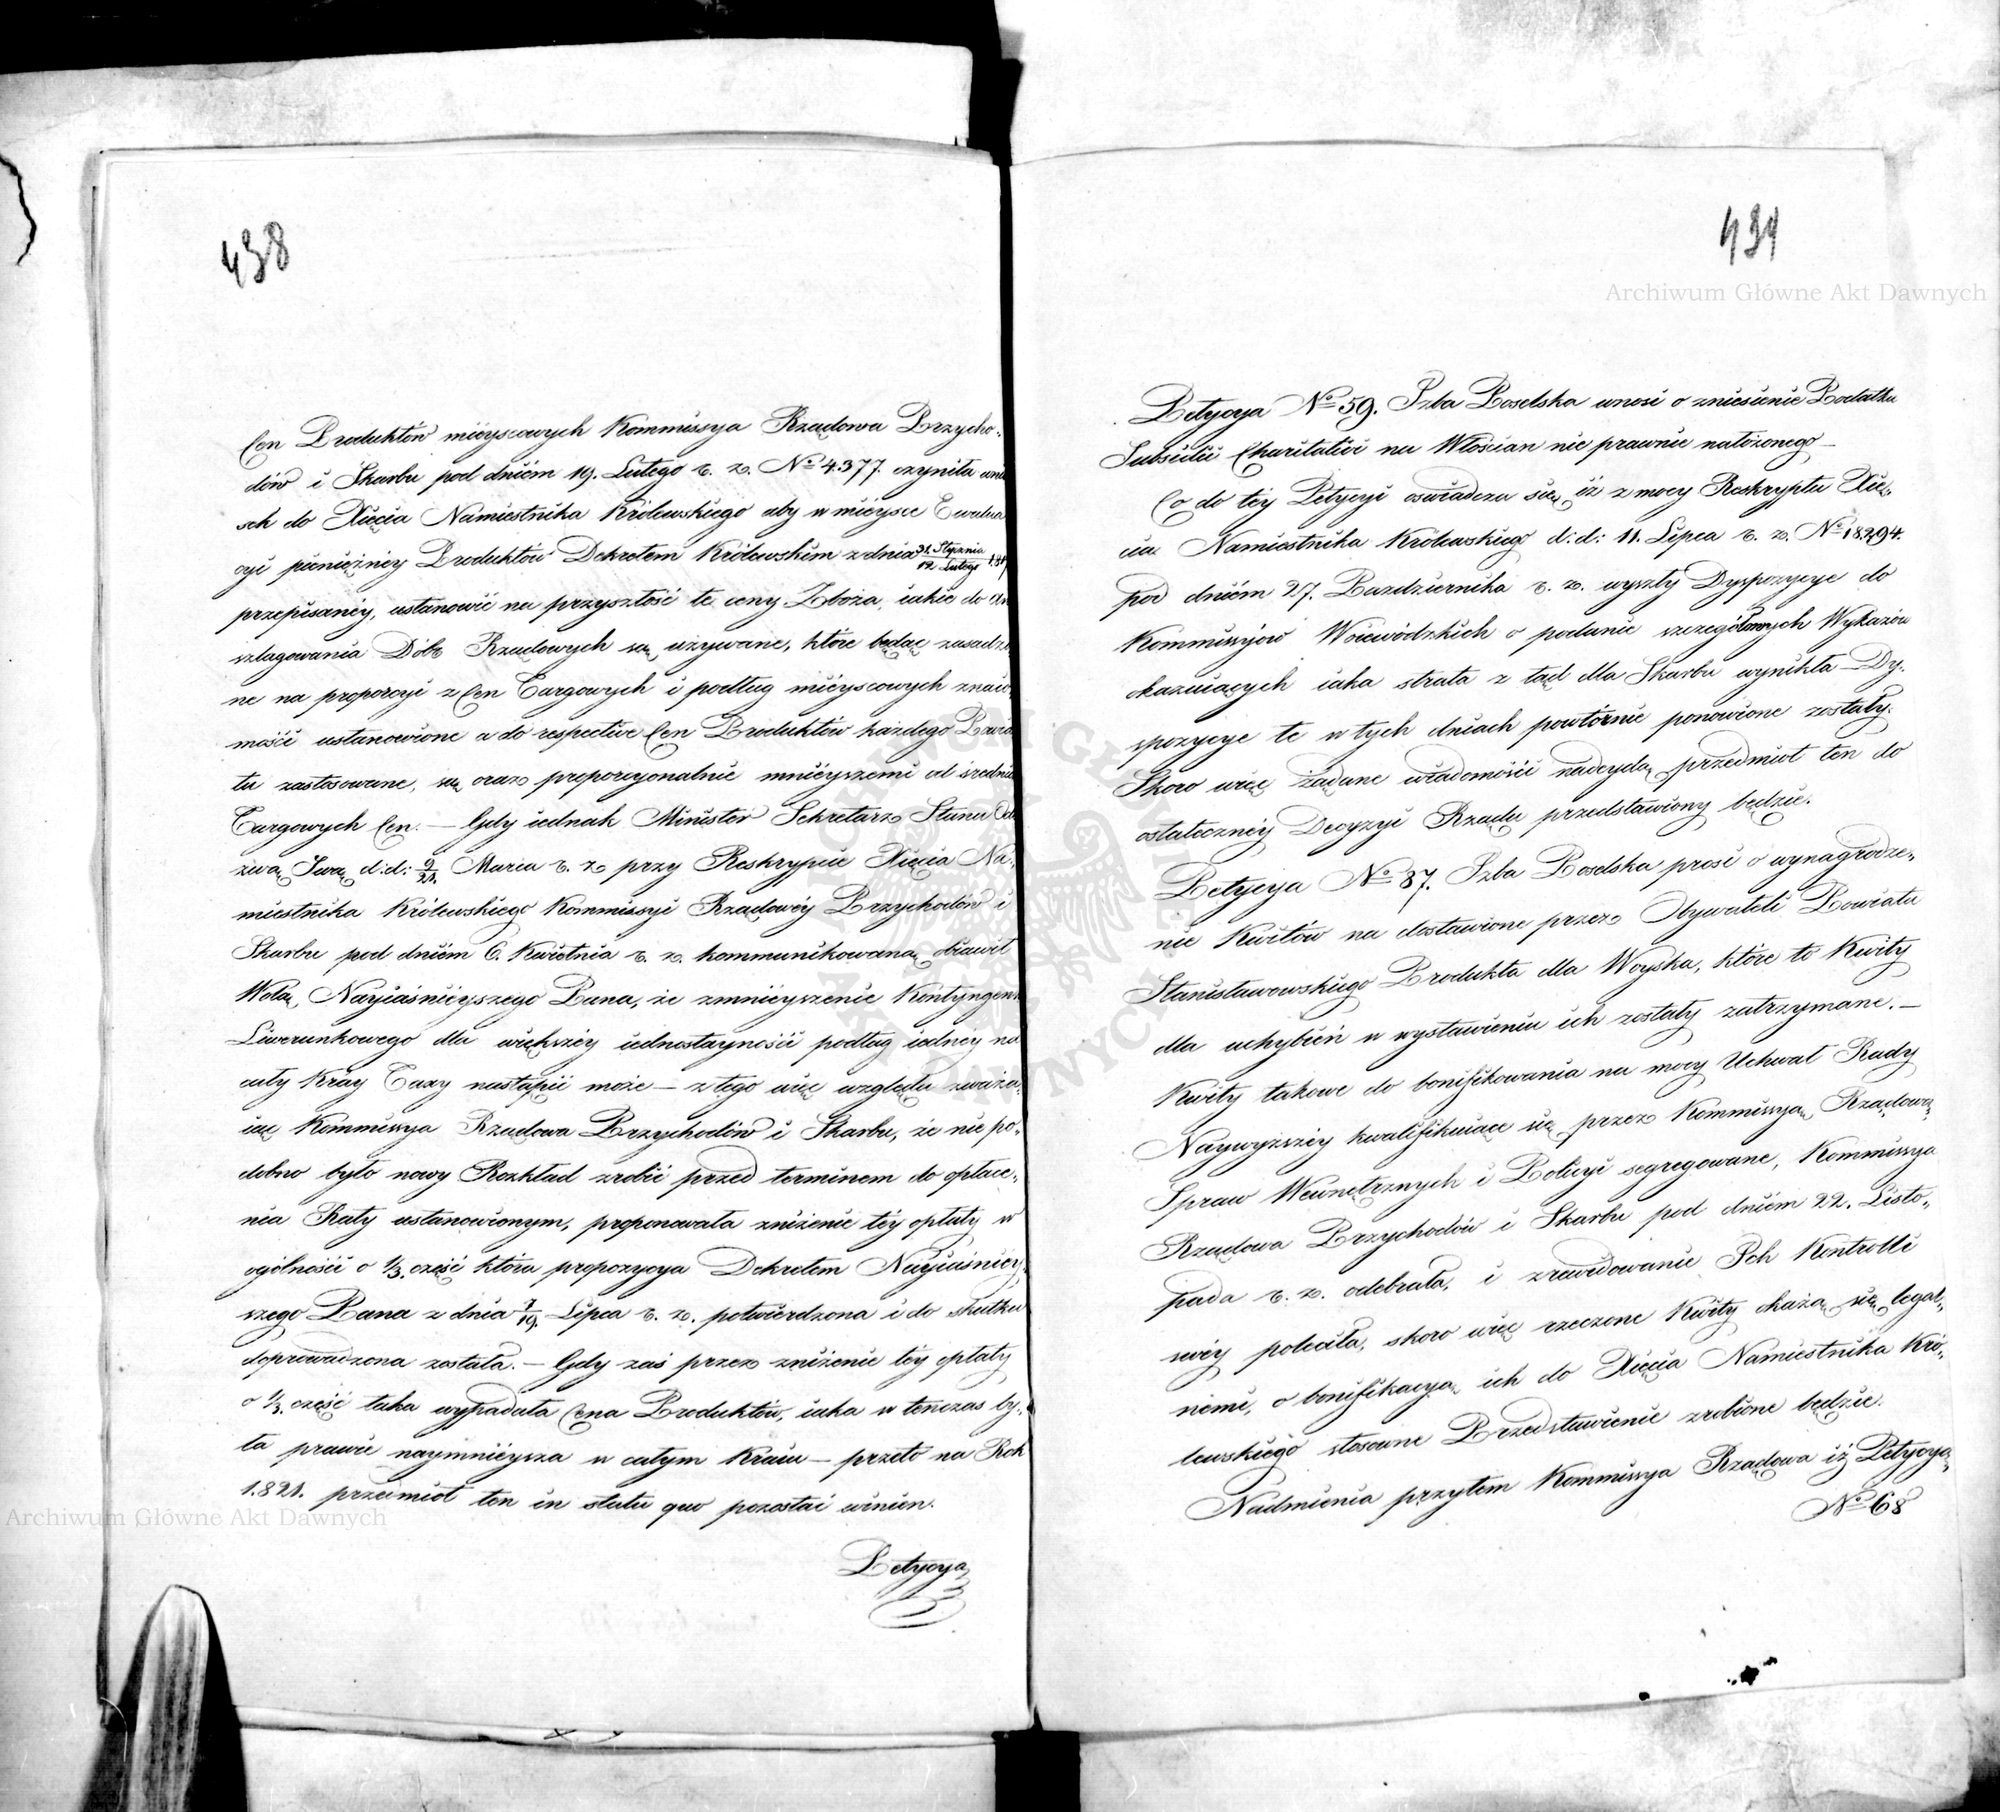 438
Cen Produktów mieyscowych Kommissya Rządowa Przycho-
dów i Skarbu pod dniem 19. Lutego r. z. No 4.377. czynita wnio
sek do Xięcia Namiestnika Królewskiego aby w mieysce Ewalua
cyi pienięźney Produktów Dekretem Królewskim z dnia 31. Stycznia/12 Lutego 1817
przepisanéy, ustanowić na przyszłość te ceny Zboża, iakie do An
szlagowania Dóbr Rządowych są używane, które będąc zasadzo
ne na proporcyi z Cen Targowych i podług mieyscowych znaio-
mości ustanowione a do respective Cen Produktów każdego Powia
tu zastosowane, są oraz proporcyonalnie mnieyszemi od średnich
Targowych Cen. — Gdy iednak Minister Sekretarz Stanu Ode
zwą Swą d:d: 9/21. Marca r. z. przy Reskrypcie Xięcia Na-
miestnika Królewskiego Kommissyi Rządowéy Przychodów i
Skarbu pod dniem 6. Kwietnia r. z. kommunikowaną, obiawił
Wolą Nayiaśnieyszego Pana, że zmnieyszenie Kontyngensu
Liwerunkowego dla większéy iednostayności podług iednéy na
cały Kray Taxy nastąpić może — z tego więc względu zważa-
iąc Kommissya Rządowa Przychodów i Skarbu, że nie po-
dobno było nowy Rozkład zrobić przed terminem do opłace-
nia Raty ustanowionym, proponowała zniżenie téy opłaty w
ogólności o 1/3. część która propozycya Dekretem Nayiaśniey-
szego Pana z dnia 7/19. Lipca r. z. potwierdzona i do skutku
doprowadzona została. — Gdy zaś przez zniżenie téy opłaty
o 1/3. część taka wypadała Cena Produktów, iaka w tenczas by-
ła prawie naymnieysza w całym Kraiu — przeto na Rok
1.821. przedmiot ten in statu quo pozostać winien.
Petycya
439
Petycya No 59. Izba Poselska wnosi o zniesienie Podatku
Subsidii Charitativi na Włościan nie prawnie nałożonego —
Co do téy Petycyi oświadcza się, iż z mocy Reskryptu Xię-
cia Namiestnika Królewskiego d:d: 11. Lipca r. z. No 18,294.
pod dniem 27. Pazdziernika r. z. wyszły Dyspozycye do
Kommissyiow Woiewódzkich o podanie szczegółowych Wykazów
okazuiących iaka strata z tąd dla Skarbu wynikła — Dy-
spozycye te w tych dniach powtórnie ponowione zostały.
Skoro więc żądane wiadomości nadeydą, przedmiot ten do
ostatecznéy Decyzyi Rządu przedstawiony będzie.
Petycya No 87. Izba Poselska prosi o wynagrodze-
nie Kwitów na dostawione przez Obywateli Powiatu
Stanisławowskiego Produkta dla Woyska, które to Kwity
dla uchybień w wystawieniu ich zostały zatrzymane. —
Kwity takowe do bonifikowania na mocy Uchwał Rady
Naywyższéy kwalifikuiące się przez Kommissyą Rządową
Spraw Wewnętrznych i Policyi segregowane, Kommissya
Rządowa Przychodów i Skarbu pod dniem 22. Listo-
pada r. z. odebrała, i zrewidowanie Ich Kontrolli
swéy poleciła, skoro więc rzeczone Kwity okażą się legal-
nemi, o bonifikacyą ich do Xięcia Namiestnika Kró-
lewskiego stosowne Przedstawienie zrobione będzie.
Nadmienia przytem Kommissya Rządowa iż Petycya
No 68
Archiwum Główne Akt Dawnych
Archiwum Główne Akt Dawnych